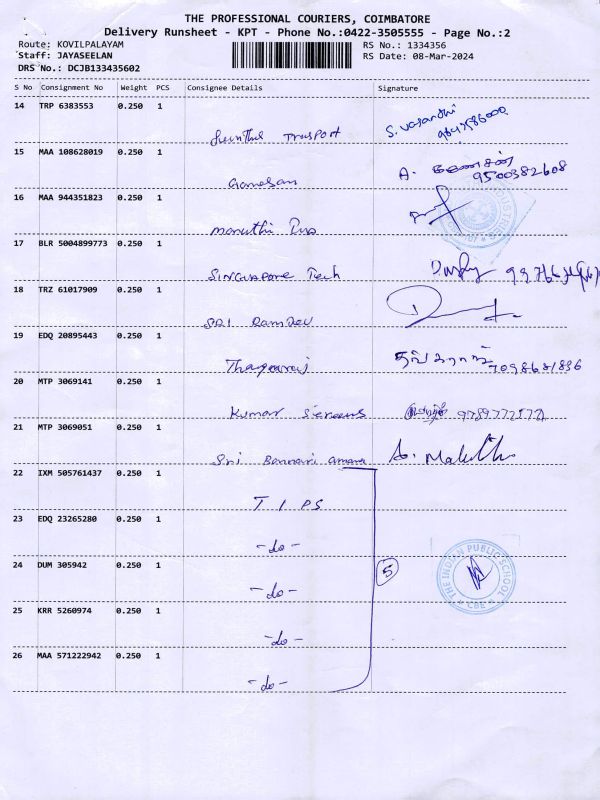 THE PROFESSIONAL COURIERS, COIMBATORE
Delivery Runsheet - KPT - Phone No.:0422-3505555 - Page No.:2
Route: KOVILPALAYAM RS No.: 1334356
Staff: JAYASEELAN RS Date: 08-Mar-2024
DRS No.: DCJB133435602
S No Consignment No Weight PCS Consignee Details Signature
14 TRP 6383553 0.250 1
S. Vasandhi
15 MAA 108628019 0.250 1
Ganesan A. 9500382608
16 MAA 944351823 0.250 1
Maruthi
17 BLR 5004899773 0.250 1
Singapore Tech
18 TRZ 61017909 0.250 1
SRI Ramdev
19 EDQ 20895443 0.250 1
Thangaraj தங்கராஜ் 7098681836
20 MTP 3069141 0.250 1
Kumar
21 MTP 3069051 0.250 1
Sri Bannari Amman
22 IXM 505761437 0.250 1
T I P S
23 EDQ 23265280 0.250 1
-do-
24 DUM 305942 0.250 1
-do- 5 THE INDIAN PUBLIC SCHOOL * CBE *
25 KRR 5260974 0.250 1
-do-
26 MAA 571222942 0.250 1
-do-